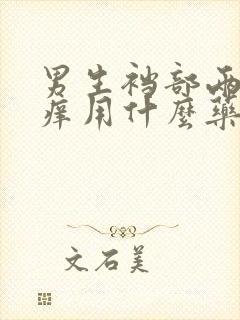 男生裆部两
痒用什麼藥
文石美